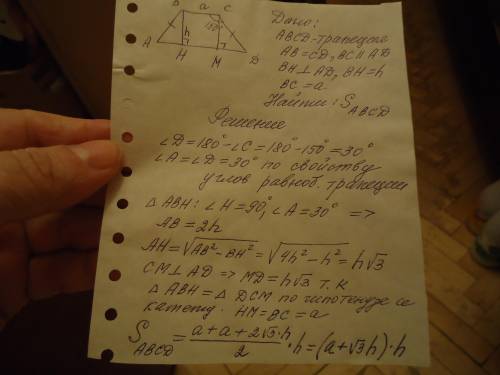 B a C
150°
h
A H M D
Дано:
ABCD-трапеция
AB=CD, BC∥AD
BH⊥AD, BH=h
BC=a
Найти: S ABCD
Решение
∠D=180°-∠C=180°-150°=30°
∠A=∠D=30° по свойству
углов равноб. трапеции
△ABH: ∠H=90°, ∠A=30° =>
AB=2h
AH=√AB²-BH²=√4h²-h²=h√3
CM⊥AD => MD=h√3 т.к
△ABH=△DCM по гипотенузе и
катету. HM=BC=a
S ABCD = a+a+2√3·h / 2 · h=(a+√3h)·h